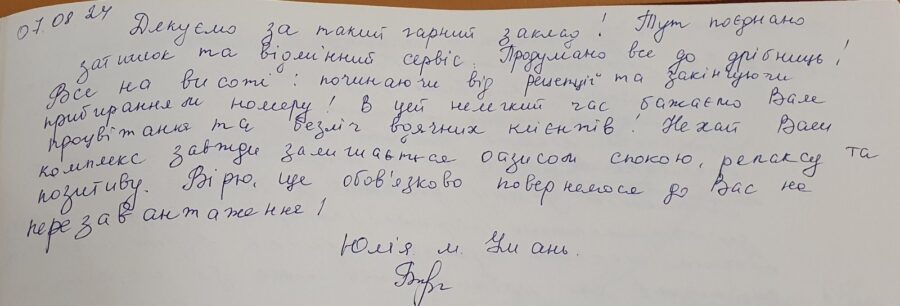 07.08.24
Дякуємо за такий гарний заклад! Тут поєднано
затишок та відмінний сервіс. Продумано все до дрібниць!
Все на висоті: починаючи від рецепції та закінчуючи
прибиранням номеру! В цей нелегкий час бажаємо Вам
процвітання та безліч вдячних клієнтів! Нехай Ваш
комплекс завжди залишається оазисом спокою, релаксу та
позитиву. Вірю, ще обов'язково повернемося до Вас на
перезавантаження!
Юлія м. Умань.